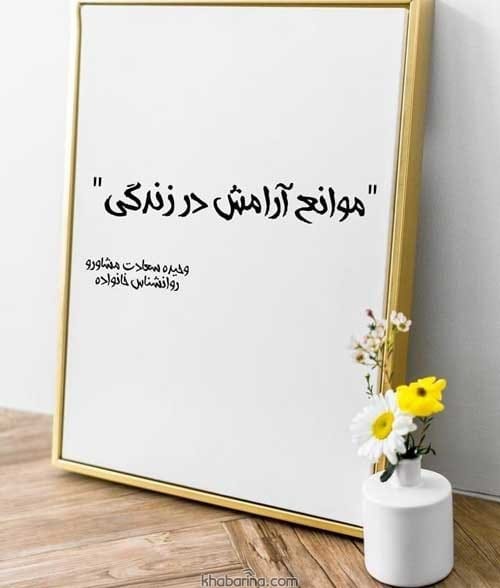 "موانع آرامش در زندگی"
وحیده سعادت مشاورو
روانشناس خانواده
khabarina.com